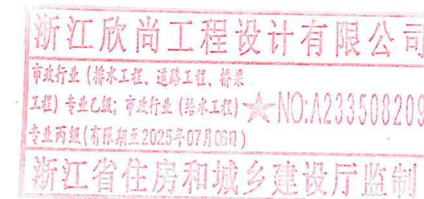 浙江欣尚工程设计有限公司
市政行业（排水工程、道路工程、桥梁
工程）专业乙级；市政行业（给水工程）
专业丙级（有限期至2025年07月06日）
NO:A233508209
浙江省住房和城乡建设厅监制